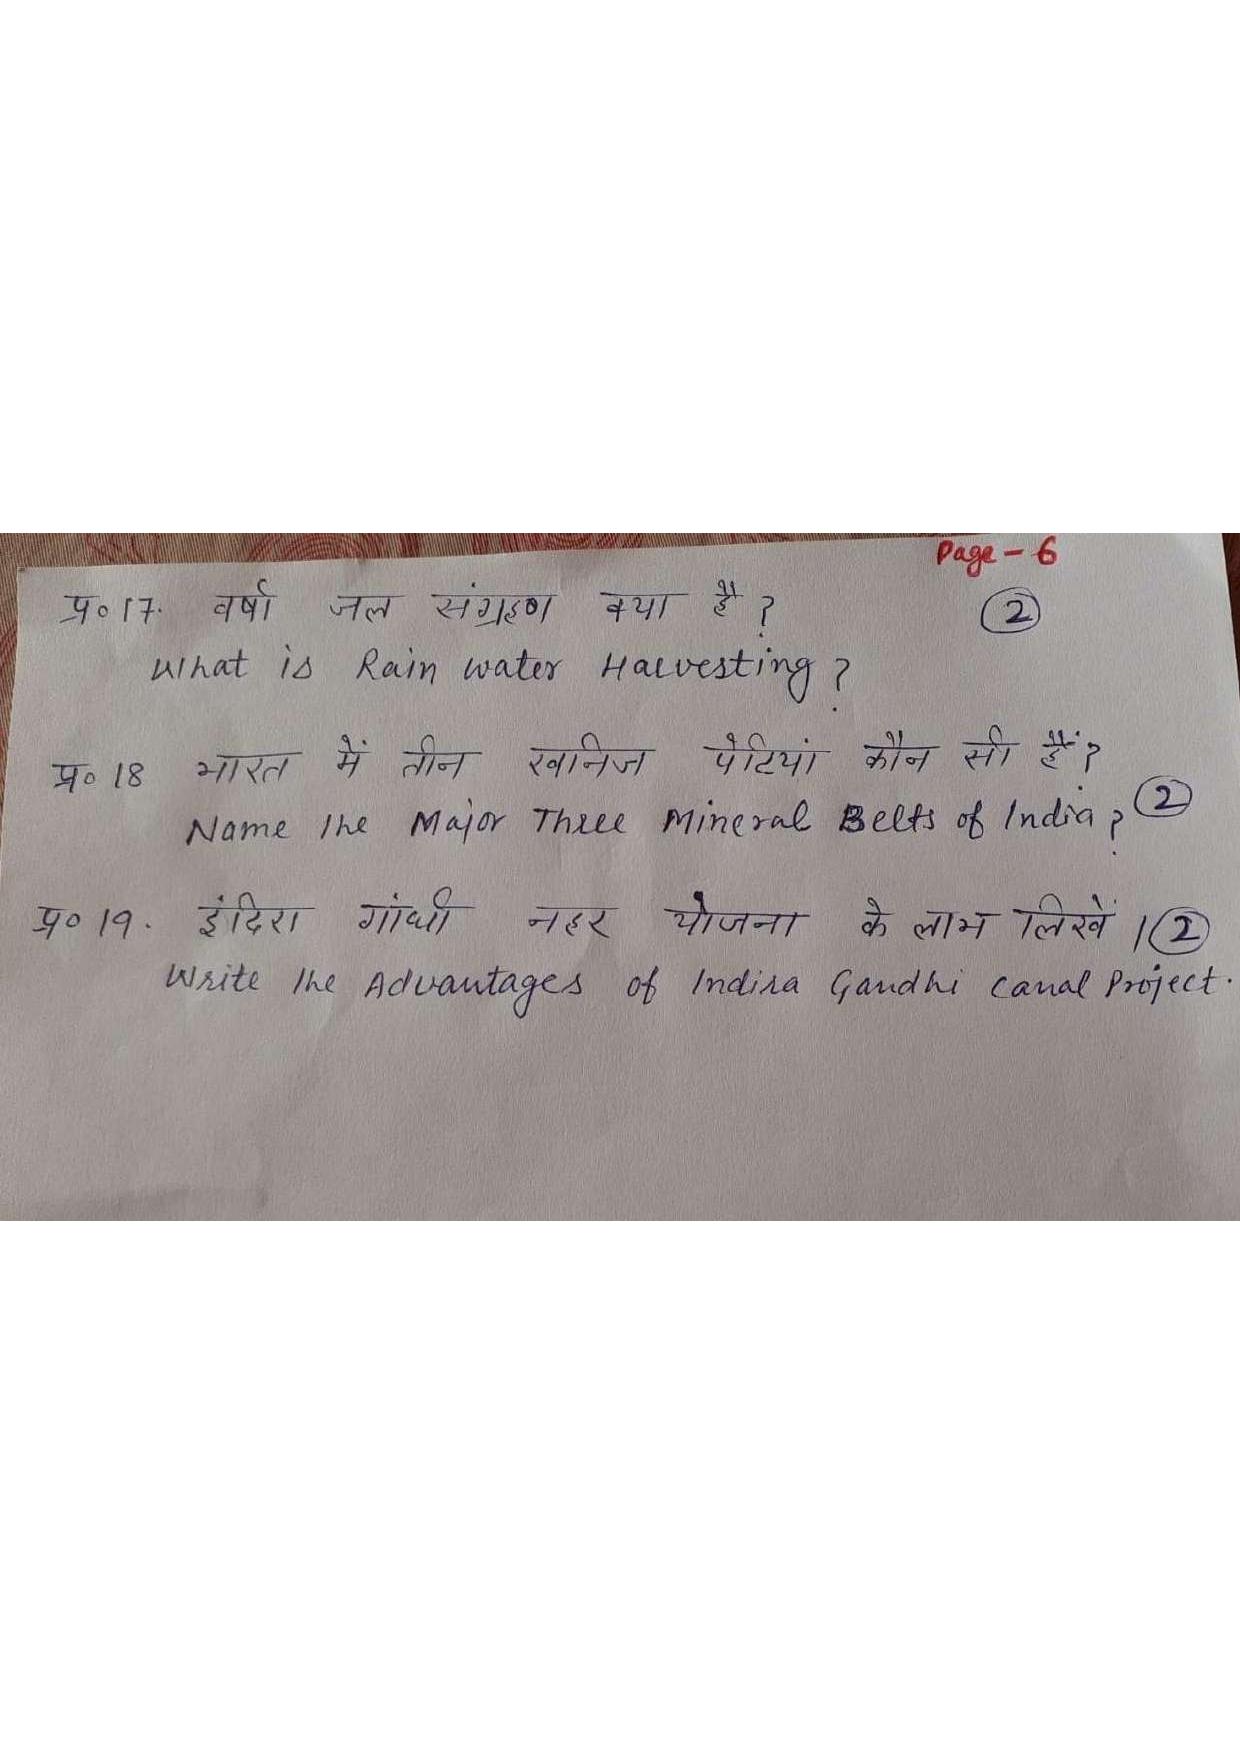 Page - 6
प्र० 17. वर्षा जल संग्रहण क्या है ? (2)
What is Rain water Harvesting ?
प्र० 18 भारत में तीन खनिज पेटियां कौन सी हैं ?
Name the Major Three Mineral Belts of India ? (2)
प्र० 19. इंदिरा गांधी नहर योजना के लाभ लिखें । (2)
Write the Advantages of Indira Gandhi Canal Project.